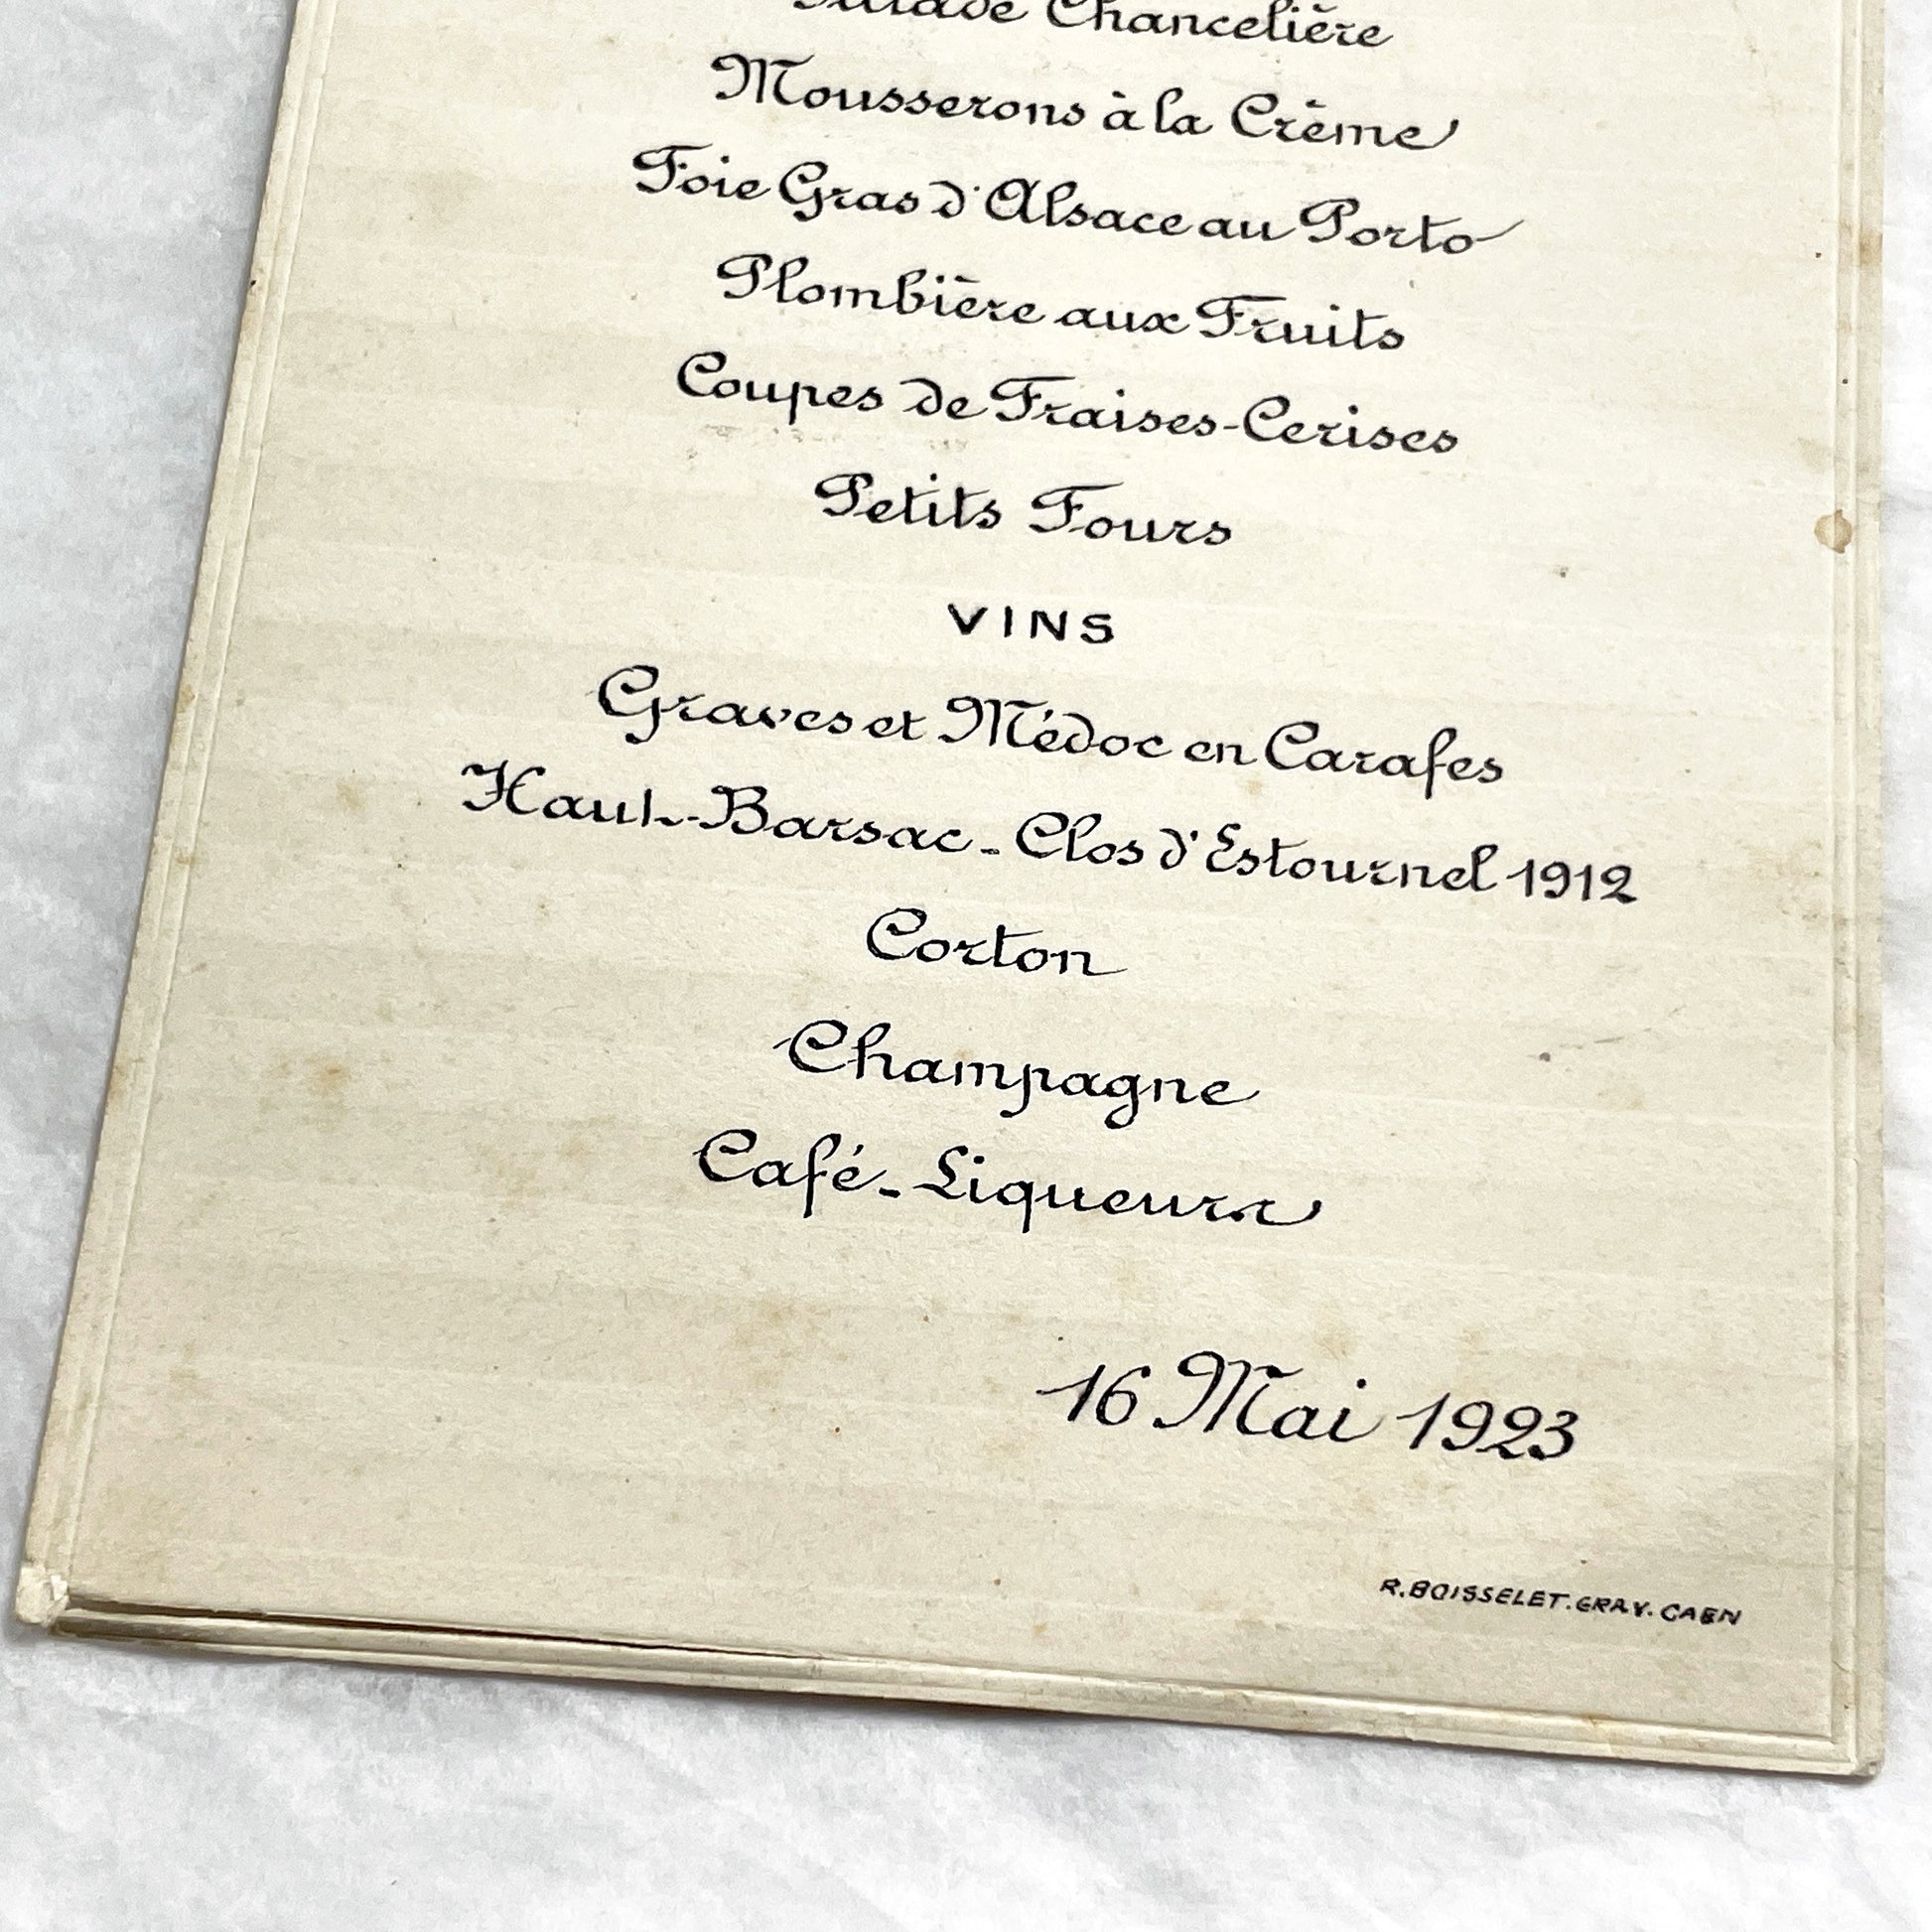 Salade Chancelière
Mousserons à la Crème
Foie Gras d'Alsace au Porto
Plombière aux Fruits
Coupes de Fraises-Cerises
Petits Fours
VINS
Graves et Médoc en Carafes
Haut-Barsac - Clos d'Estournel 1912
Corton
Champagne
Café - Liqueurs
16 Mai 1923
R. BOISSELET. GRAV. CAEN